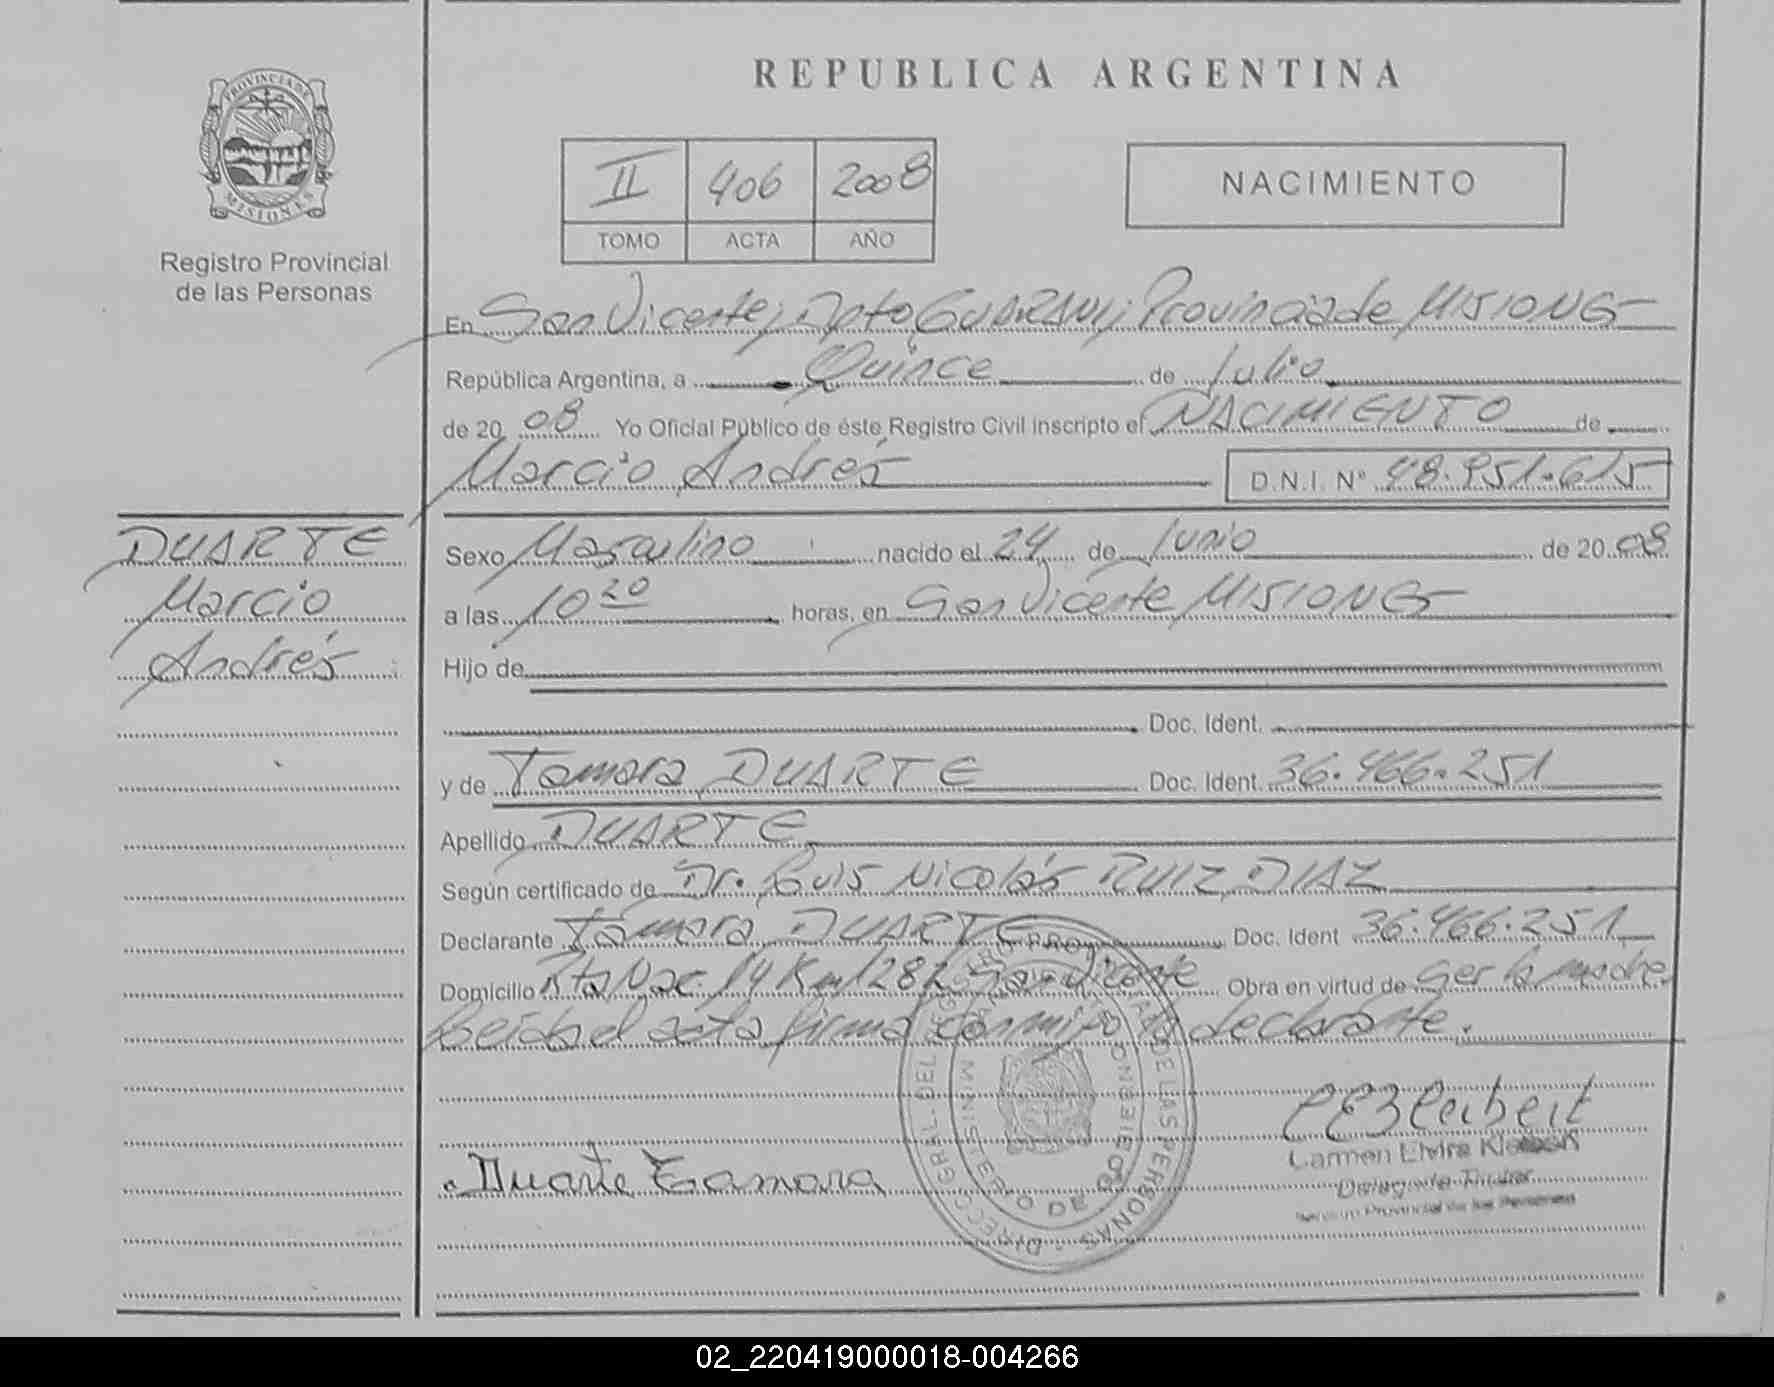 PROVINCIA DE
MISIONES
Registro Provincial
de las Personas
REPUBLICA ARGENTINA
II 406 2008
TOMO ACTA AÑO
NACIMIENTO
En San Vicente, Dpto GUARANI, Provincia de MISIONES
República Argentina, a Quince de Julio
de 2008 Yo Oficial Público de éste Registro Civil inscripto el NACIMIENTO de
Marcio Andrés D.N.I. Nº 48.951.615
DUARTE
Marcio
Andrés
Sexo Masculino nacido el 24 de Junio de 2008
a las 10 20 horas, en San Vicente MISIONES
Hijo de
Doc. Ident.
y de Tamara DUARTE Doc. Ident. 36.466.251
Apellido DUARTE
Según certificado de Dr. Luis Nicolás RUIZ DIAZ
Declarante Tamara DUARTE Doc. Ident 36.466.251
Domicilio Rta Nac. 14 Km 1282 San Vicente Obra en virtud de ser la madre
Leída el acta firma conmigo la declarante.
Duarte Tamara
Carmen Elvira
Delegada Titular
Registro Provincial de las Personas
DIRECC. GRAL. DEL REGISTRO PROVINCIAL DE LAS PERSONAS
MINISTERIO DE GOBIERNO
02_220419000018-004266